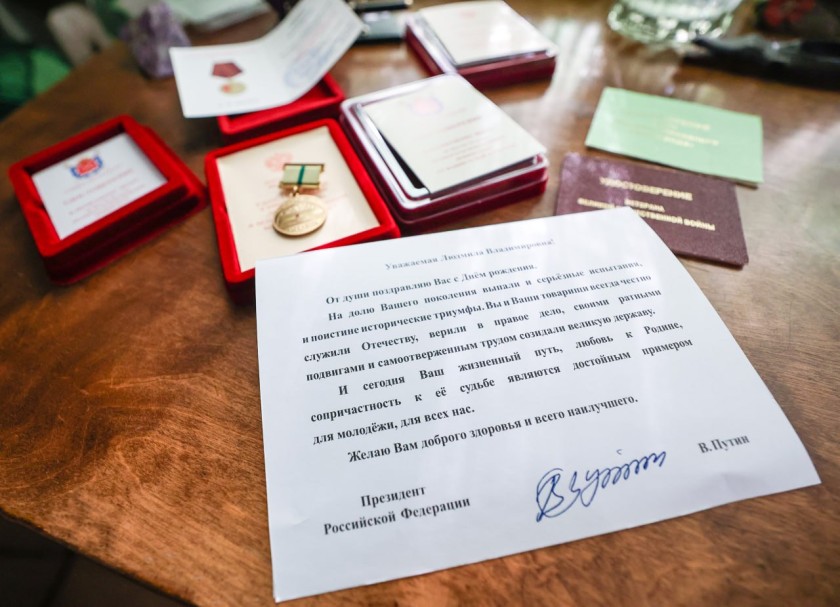 УДОСТОВЕРЕНИЕ
ВЕТЕРАНА
ВЕЛИКОЙ ОТЕЧЕСТВЕННОЙ ВОЙНЫ
Уважаемая Людмила Владимировна!
От души поздравляю Вас с Днём рождения.
На долю Вашего поколения выпали и серьёзные испытания,
и поистине исторические триумфы. Вы и Ваши товарищи всегда честно
служили Отечеству, верили в правое дело, своими ратными
подвигами и самоотверженным трудом созидали великую державу.
И сегодня Ваш жизненный путь, любовь к Родине,
сопричастность к её судьбе являются достойным примером
для молодёжи, для всех нас.
Желаю Вам доброго здоровья и всего наилучшего.
Президент
Российской Федерации
В.Путин